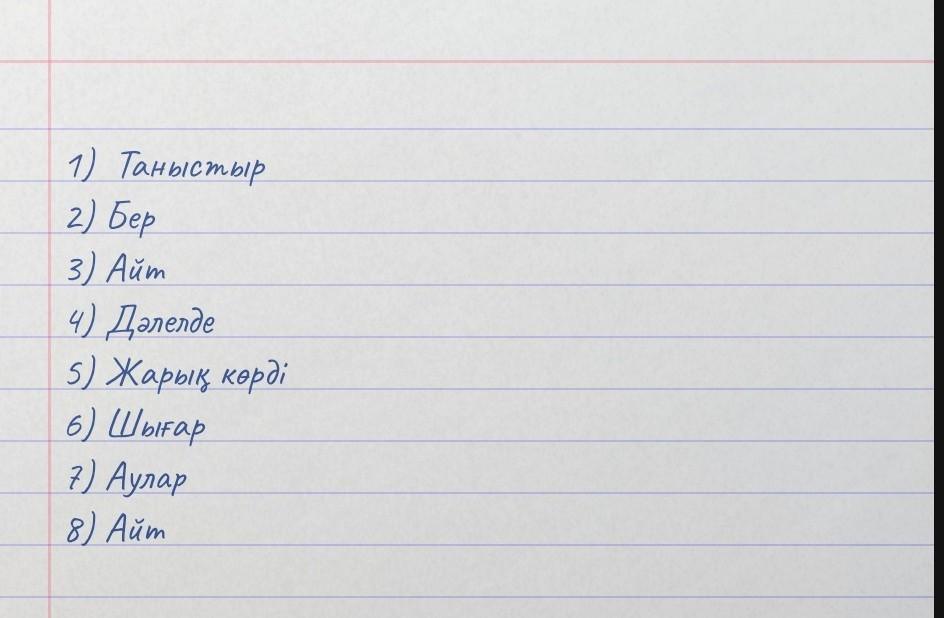 1) Таныстыр
2) Бер
3) Айт
4) Дәлелде
5) Жарық көрді
6) Шығар
7) Аулар
8) Айт